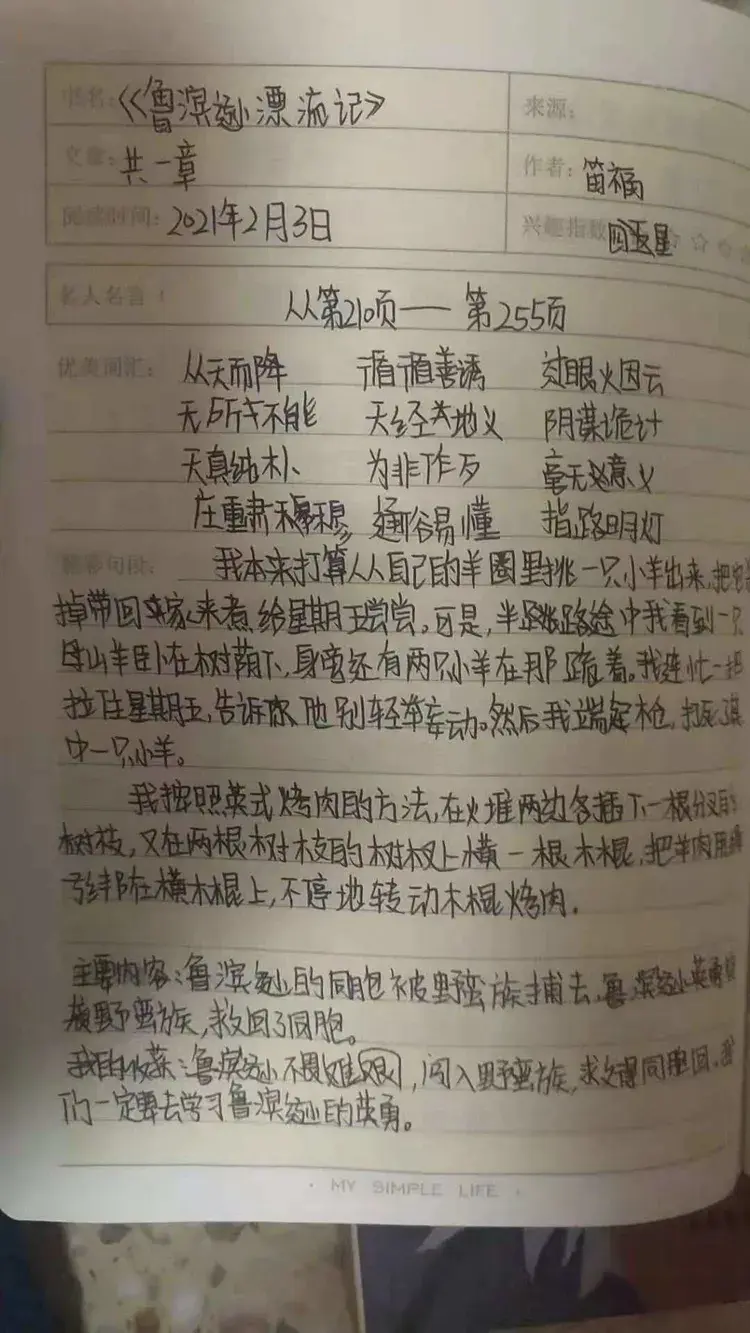 书名:《鲁滨逊漂流记》 来源:
文章: 共一章 作者: 笛福
阅读时间: 2021年2月3日 兴趣指数 四五星 ☆ ☆
名人名言: 从第210页——第255页
优美词汇: 从天而降 循循善诱 过眼烟云
无所不能 天经地义 阴谋诡计
天真纯朴 为非作歹 毫无意义
庄重肃穆 通俗易懂 指路明灯
精彩句段: 我本来打算从自己的羊圈里挑一只小羊出来,把它
掉带回家来煮给星期五尝尝。可是,半路途中我看到一只
母山羊卧在树荫下,身旁还有两只小羊在那蹲着。我连忙一把
拉住星期五,告诉他别轻举妄动。然后我端定枪,打死了其
中一只小羊。
我按照英式烤肉的方法,在火堆两边各插下一根分叉的
树枝,又在两根树枝的树杈上横一根木棍,把羊肉用绳
绑在横木棍上,不停地转动木棍烤肉.
主要内容:鲁滨逊的同胞被野蛮族捕去,鲁滨逊英勇
野蛮族,救回了同胞。
我的收获:鲁滨逊不畏难艰,闯入野蛮族,求得同胞回,我
们一定要去学习鲁滨逊的英勇。
· MY SIMPLE LIFE ·